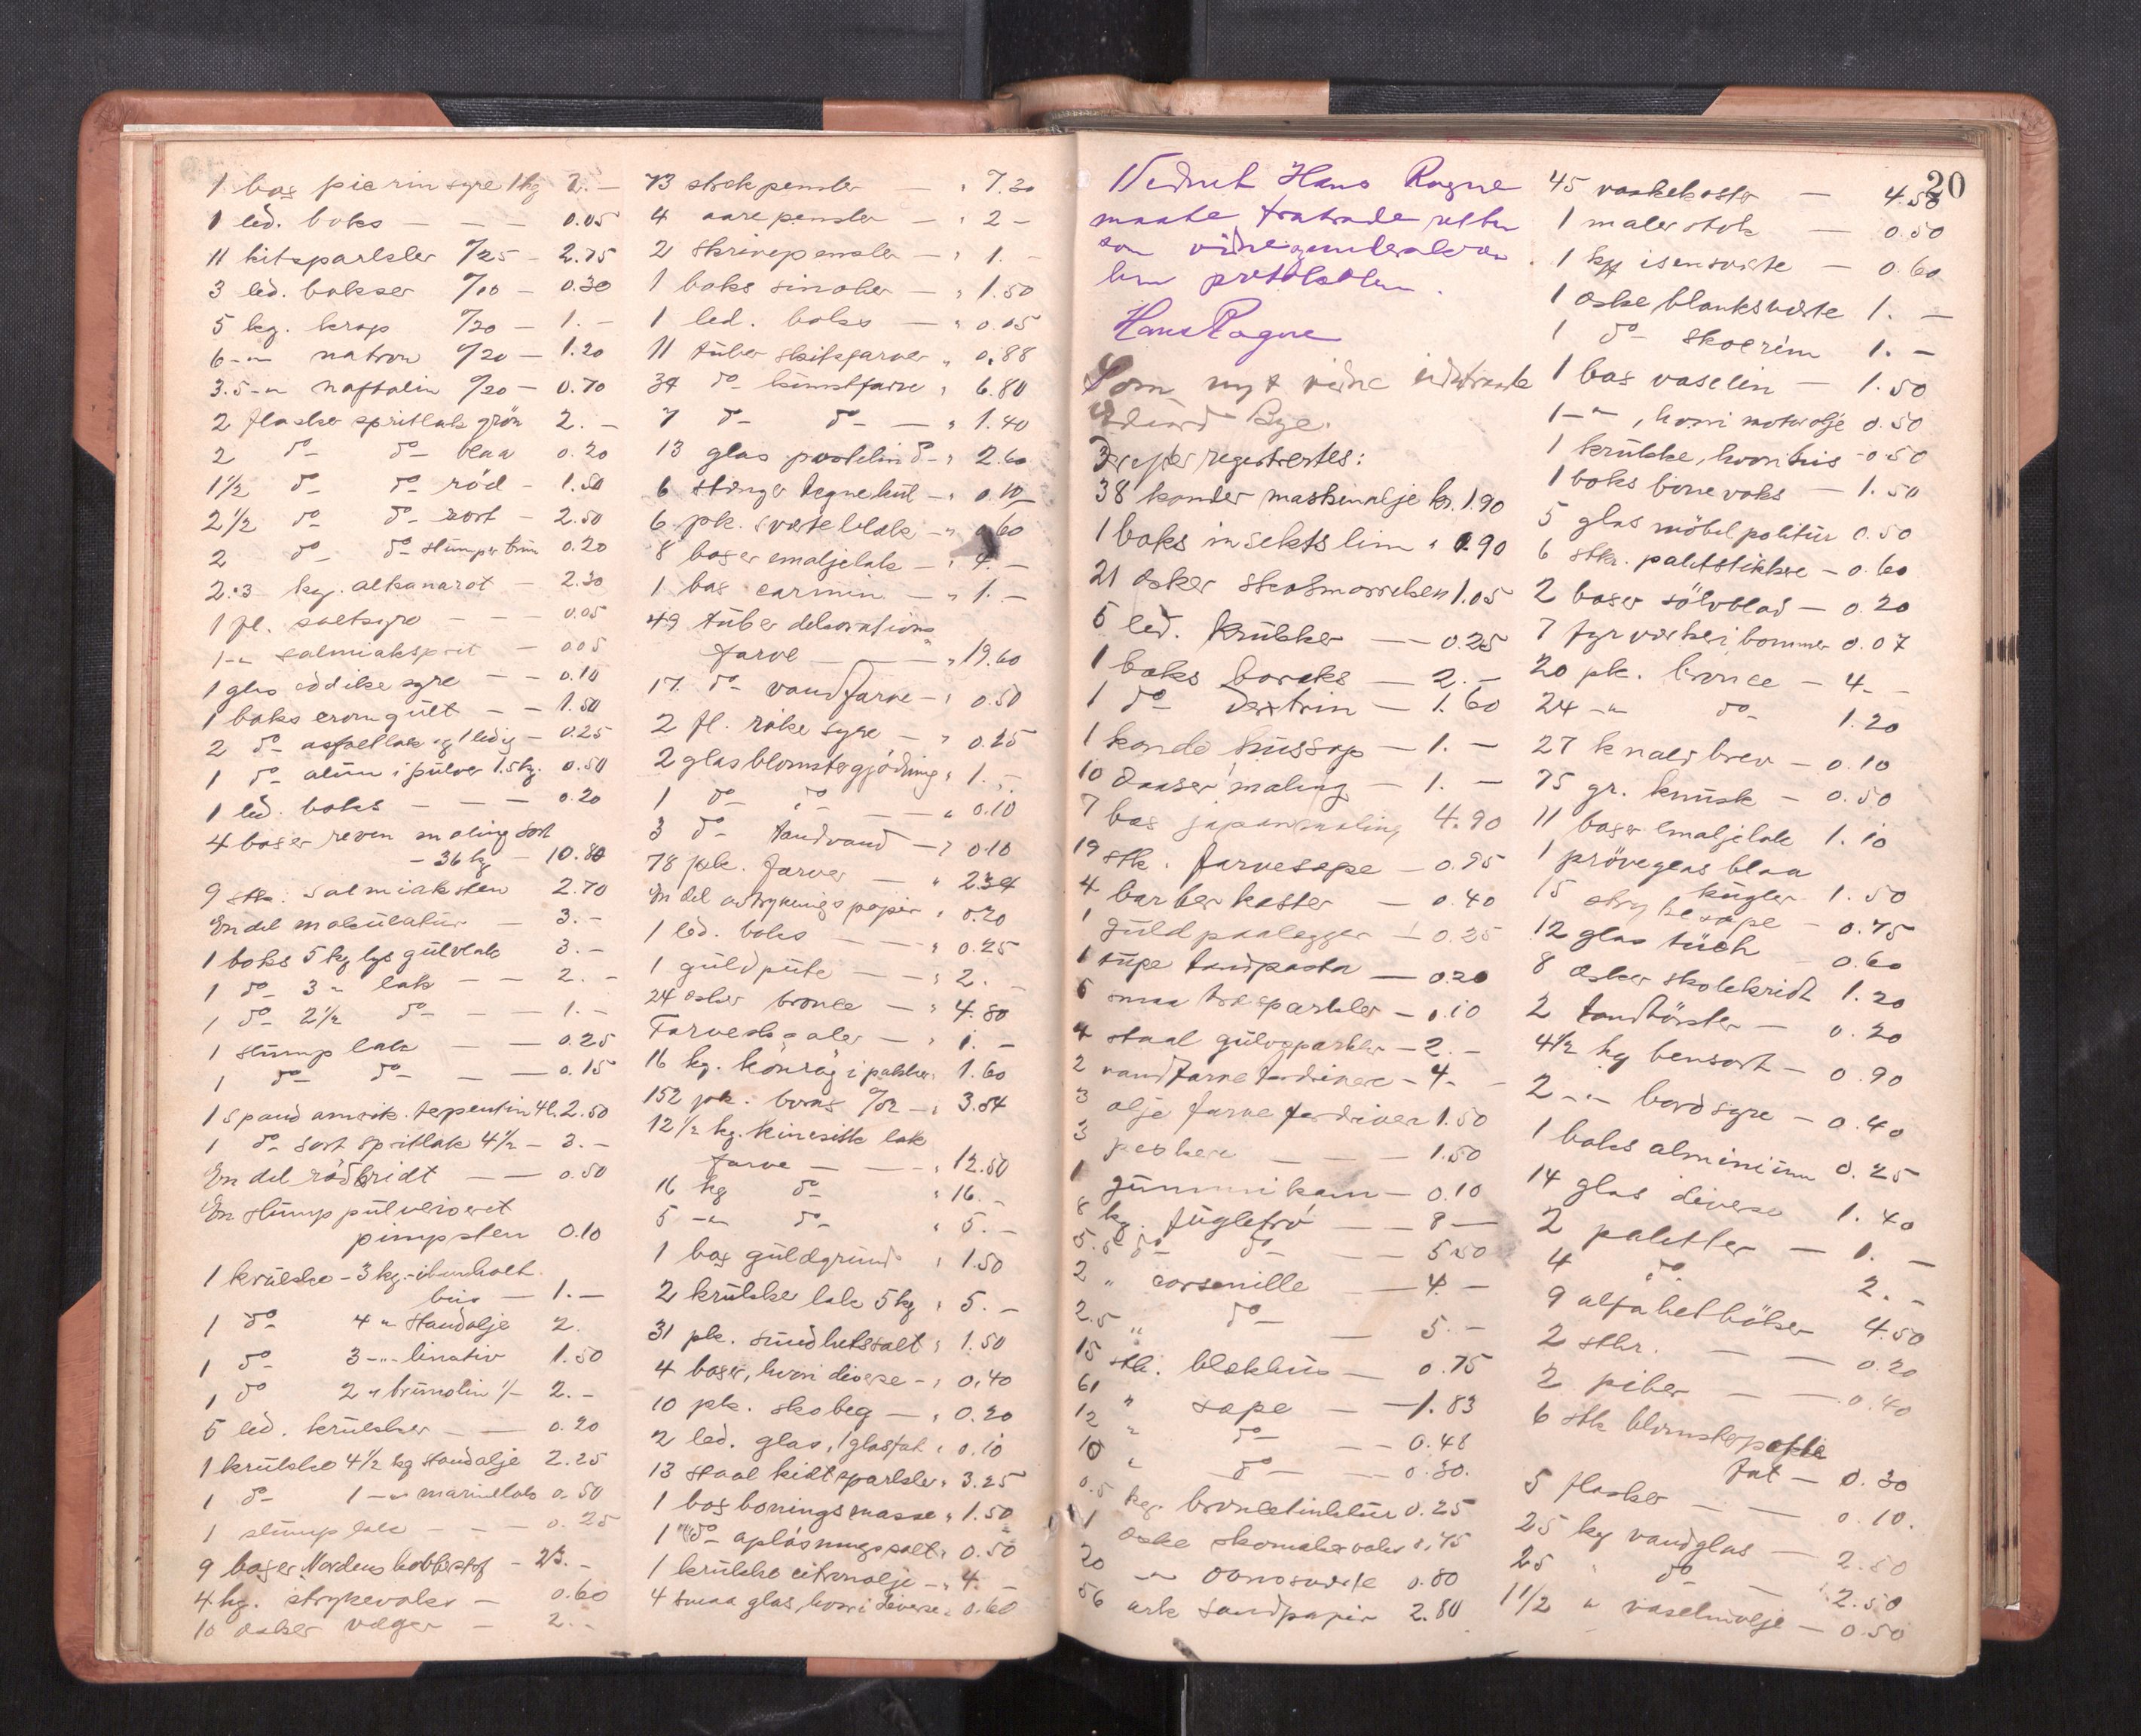 1 bax picrinsyre 1 kg 2.—
1 led. boks — — — 0.05
11 kitsparkler à/25 – 2.75
3 led. bokser à/10 – 0.30
5 kg. krap à/20 – 1.–
6 -"- natron à/20 – 1.20
3.5 -"- naftalin à/20 – 0.70
2 flasker spritlak grön 2.–
2 do do blaa 0.20
1½ do do röd – 1.50
2½ do do sort – 2.50
2 do do slumper brun 0.20
2.3 kg. alkanarot – 2.30
1 fl. saltsyre – – – 0.05
1 -"- salmiaksprit – 0.05
1 glas eddikesyre – – 0.10
1 boks cromgült – – 1.50
2 do asfaltlak og 1 ledig – 0.25
1 do alün i pülver 1.5 kg. 0.50
1 led. boks – – – 0.20
4 boxer reven maling sort
– 36 kg – 10.80
9 stk. salmiaksten 2.70
En del makülatür – 3.–
1 boks 5 kg lys gülvlak 3.–
1 do 3 " lak – – 2.–
1 do 2½ do – – 1.–
1 slump lak – – 0.25
1 do do – – 0.15
1 spand amrik. terpentin 4 l. 2.50
1 do sort spritlak 4½ – 3.–
En del rödkridt – – 0.50
En slump pülveriseret
pimpsten 0.10
1 krükke – 3 kg. ibenholt
beis – 1.–
1 do 4 " standolje 2.
1 do 3 -"- linativ 1.50
1 do 2 " brunolin 1/– 2.–
5 led. krükker – – 0.20
1 krükke 4½ kg standolje 2.25
1 do 1 -"- marinelak 0.50
1 slump lak – – – 0.25
9 boxer Nordens kobberstof – 23.–
4 kg. strykevoks – 0.60
10 æsker væger – 2.–
73 stokpensler – " 7.30
4 aarepensler – " 2 –
2 skrivepensler – " 1.–
1 boks sinober – " 1.50
1 led. boks – " 0.05
11 tüber skitsfarver " 0.88
34 do künstfarve " 6.80
7 do do – " 1.40
13 glas porselin do " 2.60
6 stænger tegnekül – " 0.10
6 pk. sværteblak – " 0.60
8 boxer emaljelak – " 4.–
1 bax carmin – " 1.–
49 tüber dekorations
farve – – " 19.60
17. do vandfarve – " 0.50
2 fl. röke syre – " 0.25
2 glas blomstergjödning " 1.–
1 do do – – " 0.10
3 do tandvand – " 0.10
78 pk. farver – " 2.34
En del avtrykningspapir " 0.20
1 led. boks – – " 0.25
1 güldpüte – – " 2.–
24 æsker bronce – " 4.80
Farveskaaler – " 1.–
16 kg. könrøg i pakker " 1.60
152 pk. borax à/02 – " 3.04
12½ kg. kinesisk lak
farve – – – " 12.50
16 kg do " 16.–
5 -"- do " 5.–
1 bax güldgrund " 1.50
2 krükker lak 5 kg " 5.–
31 pk. sündhetssalt " 1.50
4 boxer, hvori diverse – " 0.40
10 pk. skobeg – " 0.20
2 led. glas, 1 glasfat " 0.10
13 staal kidtsparkler " 3.25
1 bax boningsmasse " 1.50
1 do oplösningssalt " 0.50
1 krükke citronolje – " 4.–
4 smaa glas, hvori diverse " 0.60
20
Vidnet Hans Rogne
maatte fratræde retten
som vidne
protokollen.
Hans Rogne
Som nyt vidne
Edvard Bye.
Derefter registrertes:
38 kander maskinolje kr. 1.90
1 boks insektslim " 0.90
21 æsker skosmørrelsen 1.05
5 led. krükker – – 0.25
1 boks boraks – 2.–
1 do dextrin – 1.60
1 kande hüssop – 1.–
10 daaser maling – 1.–
7 bax japanmaling 4.90
19 stk. farvesæpe – 0.95
4 barberkoster – 0.40
1 güldpaalegger – 0.25
1 tüpe tandpasta – 0.20
5 smaa træsparkler – 0.10
4 staal gülvsparkler – 2.–
2 vandfarve fordrivere – 4.–
3 olje farve fordriver 1.50
3 peskere – – – 1.50
1 gümmikam – 0.10
8 kg. füglefrö – – 8 –
5.5 do do – – 5.50
2 " corsenille – 4 –
2.5 " do – 5.–
15 stk. blekhüs – 0.75
61 " sæpe – – 1.83
12 " do – – 0.48
10 " do – – 0.30.
0.5 kg. broncetinktür 0.25
1 æske skomakervoks 0.75
20 -"- ovnsværte 0.80
56 ark sandpapir 2.80
45 vaskekoster – 4.50
1 malerstok – 0.50
1 kg isensværte – 0.60
1 æske blanksværte 1.–
1 do skocrèm 1.–
1 bax vaselin – 1.50
1 -"-, hvori motorolje 0.50
1 krükke, hvori beis – 0.50
1 boks bonevoks – 1.50
5 glas möbelpolitür 0.50
6 stk. paletstikker – 0.60
2 boxer sölvblad – 0.20
7 fyrværkeribommer 0.07
20 pk. bronce – 4.–
24 -"- do 1.20
27 knaldbrev – 0.10
75 gr. knüsk – 0.50
11 boxer emaljelak 1.10
1 pröveglas blaa
kügler 1.50
15 strykesæpe – 0.75
12 glas tüch – 0.60
8 æsker skolekridt 1.20
2 tandbörster – 0.20
4½ kg bensort – 0.90
2 -"- bordsyre – 0.40
1 boks alminiüm 0.25
14 glas diverse 1.40
2 paletter – 1.–
4 do 2.–
9 alfabetbøker 4.50
2 stkr. – – 0.20
2 piber – – 0.40
6 stk blomsterpotte
fat – 0.30
5 flasker – – 0.10.
25 kg vandglas – 2.50
25 " do – 2.50
1½ " vaselinolje – 0.50